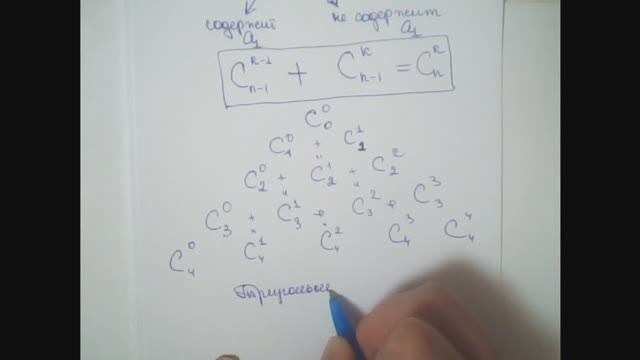 содержит не содержит
a₁ a₁
C_{n-1}^{k-1} + C_{n-1}^{k} = C_n^k
C_0^0
C_1^0 + C_1^1
C_2^0 + C_2^1 + C_2^2
C_3^0 + C_3^1 + C_3^2 + C_3^3
C_4^0 C_4^1 C_4^2 C_4^3 C_4^4